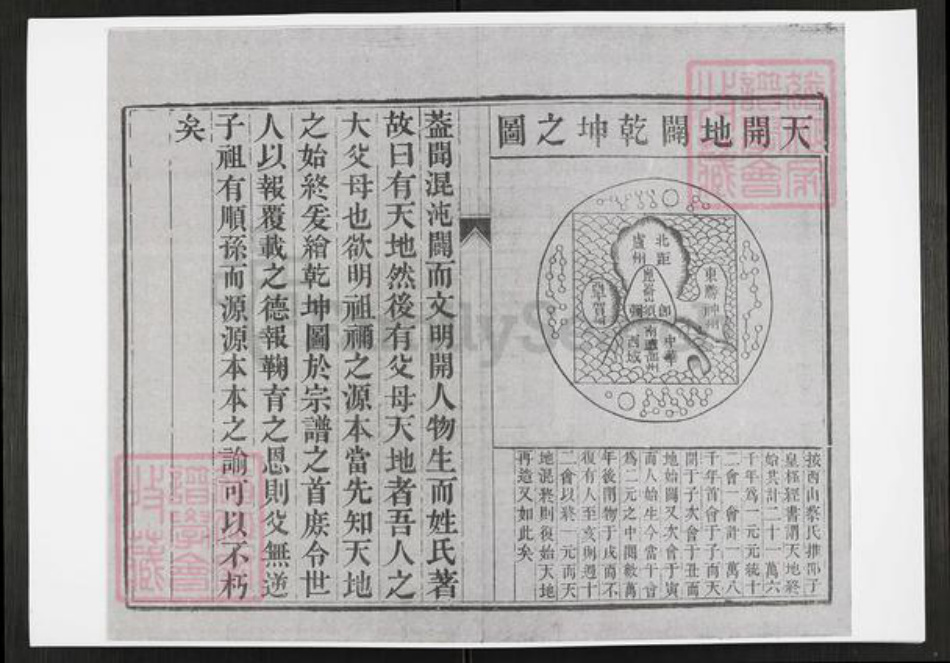 天開地闢乾坤之圖
北距
盧州
東勝神州
須彌
南贍部州
中華
西域
按西山蔡氏推邵子
皇極經書謂天地終
始其計二十一萬六
千年爲一元元統十
二會一會計一萬八
千年首會于子而天
開于子次會于丑而
地始闢又次會于寅
而人始生今當午會
爲二元之中閱數萬
年後閉物于戌而不
復有人至亥與週十
二會以終一元而天
地混終則復始天地
再造又如此矣
蓋聞混沌闢而文明開人物生而姓氏著
故曰有天地然後有父母天地者吾人之
大父母也欲明祖禰之源本當先知天地
之始終爰繪乾坤圖於宗譜之首庶令世
人以報覆載之德報鞠育之恩則父無逆
子祖有順孫而源源本本之諭可以不朽
矣